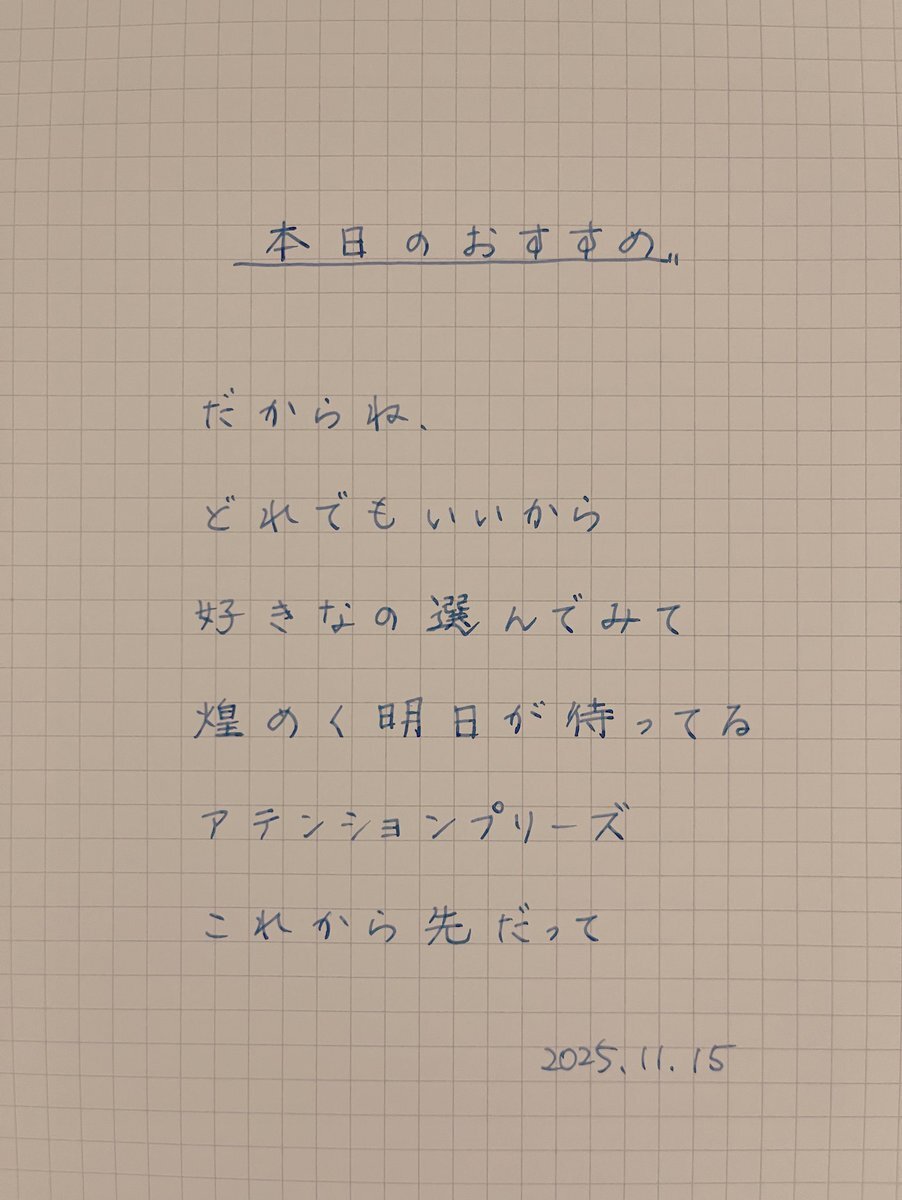 本日のおすすめ〃
だからね、
どれでもいいから
好きなの選んでみて
煌めく明日が待ってる
アテンションプリーズ
これから先だって
2025.11.15